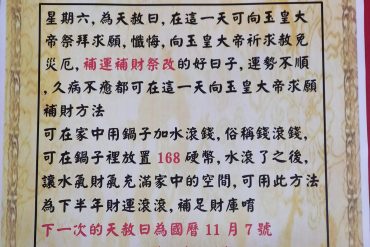 星期六,為天赦日,在這一天可向玉皇大
帝祭拜求願,懺悔,向玉皇大帝祈求赦免
災厄,補運補財祭改的好日子,運勢不順
,久病不癒都可在這一天向玉皇大帝求願
補財方法
可在家中用鍋子加水滾錢,俗稱錢滾錢,
可在鍋子裡放置 168 硬幣,水滾了之後,
讓水氣財氣充滿家中的空間,可用此方法
為下半年財運滾滾,補足財庫唷
下一次的天赦日為國曆 11 月 7 號